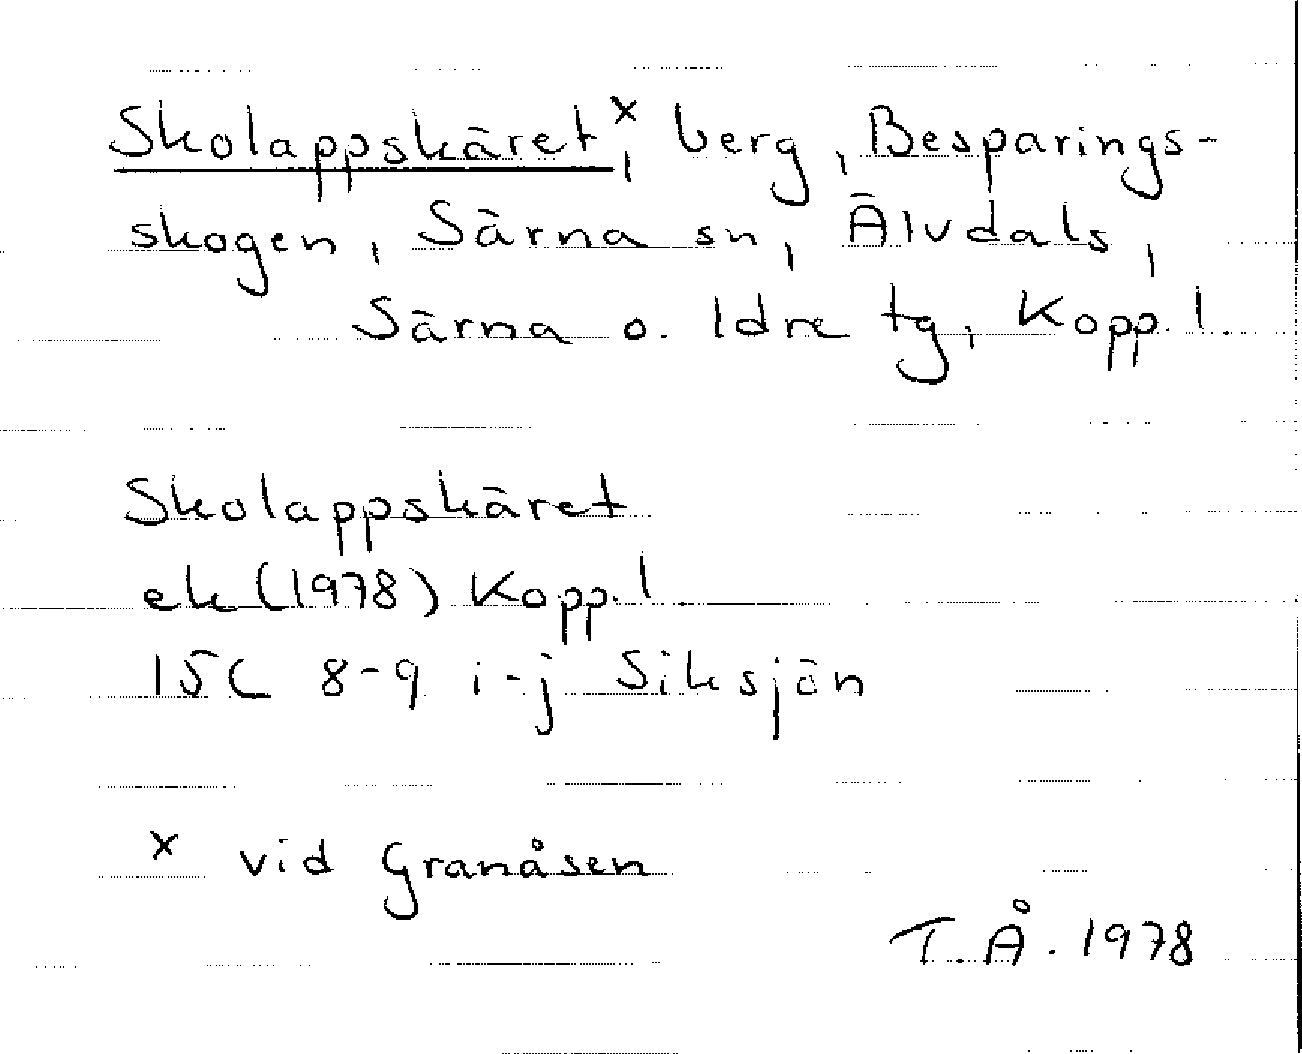 Skolappskäret x, berg, Besparings-
skogen, Särna sn, Älvdals,
Särna o. Idre tg, Kopp. l.
Skolappskäret
ek (1978) Kopp. l
15C 8-9 i-j Siksjön
x vid Granåsen
T. Å. 1978